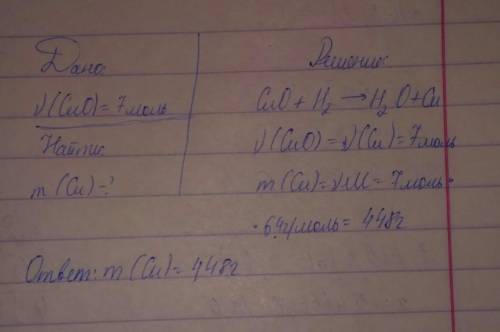 Дано:
ν(CuO)=7моль
Найти:
m(Cu)=?
Решение:
CuO + H₂ → H₂O + Cu
ν(CuO)=ν(Cu)=7моль
m(Cu)=νM= 7моль·
·64г/моль= 448г
Ответ: m(Cu)= 448г